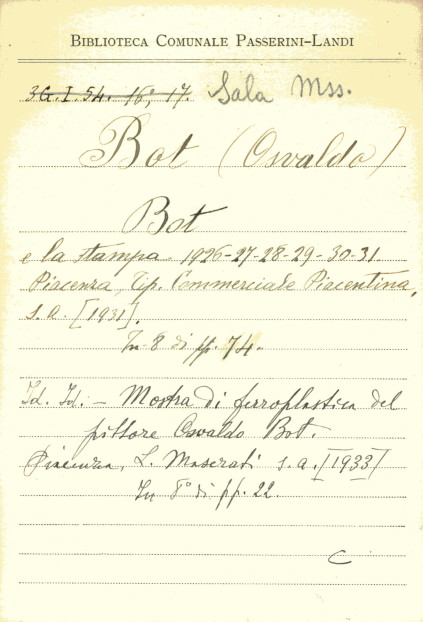 BIBLIOTECA COMUNALE PASSERINI-LANDI
3G.I.54. 16°, 17. Sala Mss.
Bot (Osvaldo)
Bot
e la stampa 1926-27-28-29-30-31.
Piacenza, Tip. Commerciale Piacentina,
s.a. [1931].
In 8 di pp. 74.
Id. Id. - Mostra di ferroplastica del
pittore Osvaldo Bot.
Piacenza, L. Maserati s.a. [1933]
In 8° di pp. 22.
C